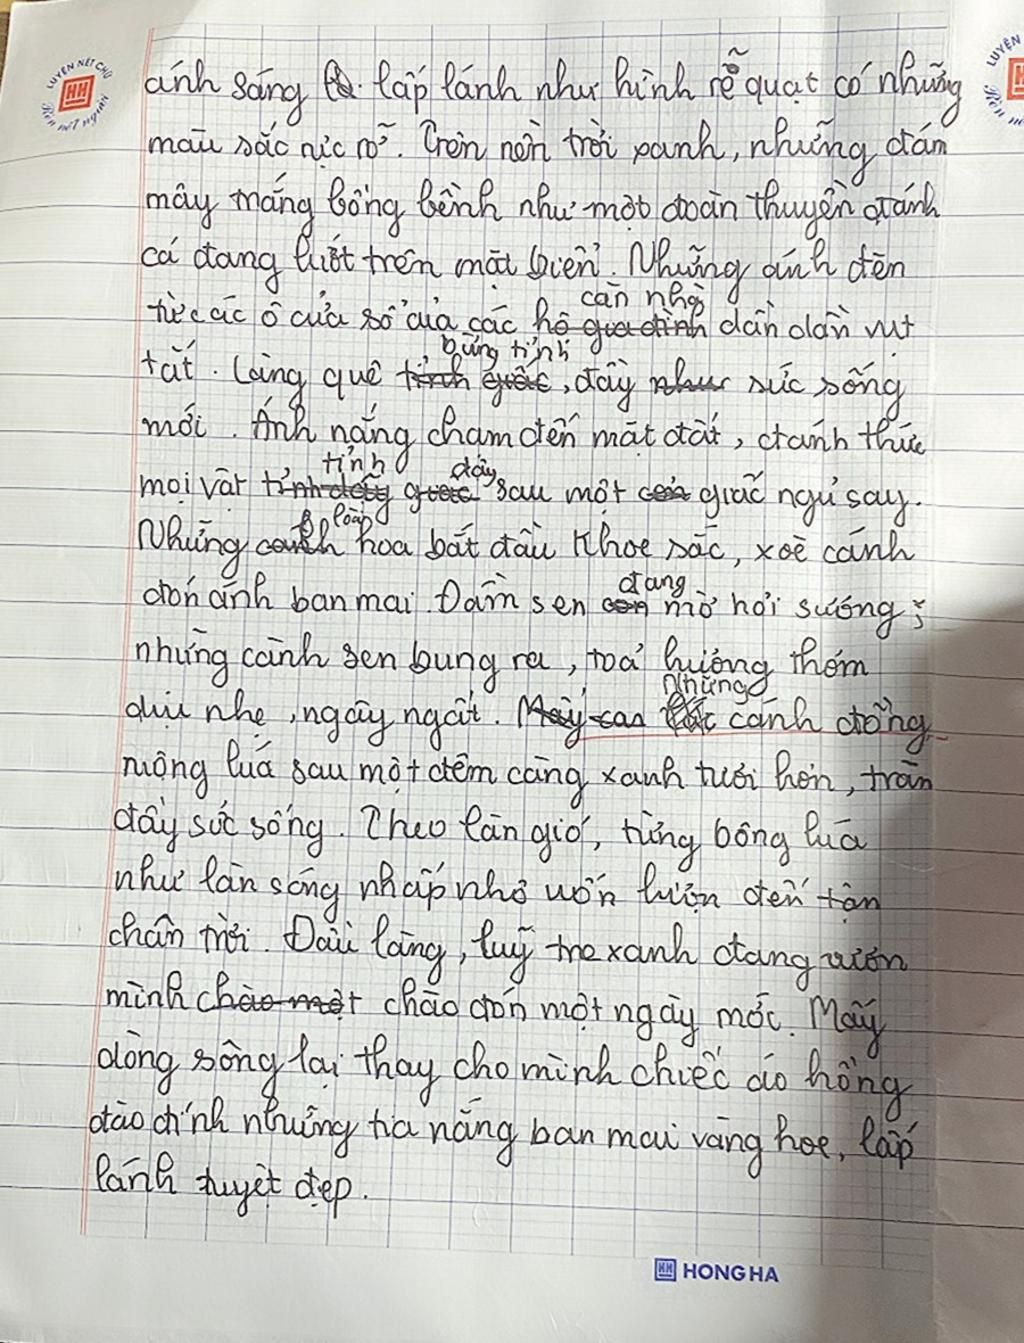 LUYỆN NÉT CHỮ
Rèn nét người
LUYỆN
ánh sáng lấp lánh như hình rẽ quạt có những
màu sắc rực rỡ. Trên nền trời xanh, những đám
mây trắng bồng bềnh như một đoàn thuyền đánh
cá đang lướt trên mặt biển. Những ánh đèn
căn nhà
từ các ô cửa sổ của các hộ gia đình dần dần vụt
bừng tỉnh
tắt. Làng quê tỉnh giấc, đầy như sức sống
mới. Ánh nắng chạm đến mặt đất, đánh thức
tỉnh dậy
mọi vật tỉnh dậy giấc sau một giấc ngủ say.
loài
Những cánh hoa bắt đầu khoe sắc, xoè cánh
đang
đón ánh ban mai. Đầm sen còn mờ hơi sương;
những cành sen bung ra, toả hương thơm
Những
dịu nhẹ, ngây ngất. Mấy cánh đồng
ruộng lúa sau một đêm càng xanh tươi hơn, tràn
đầy sức sống. Theo làn gió, từng bông lúa
như làn sóng nhấp nhô uốn lượn đến tận
chân trời. Đầu làng, luỹ tre xanh đang vươn
mình chào một chào đón một ngày mới. Mấy
dòng sông lại thay cho mình chiếc áo hồng
đào đính những tia nắng ban mai vàng hoe, lấp
lánh tuyệt đẹp.
HONG HA